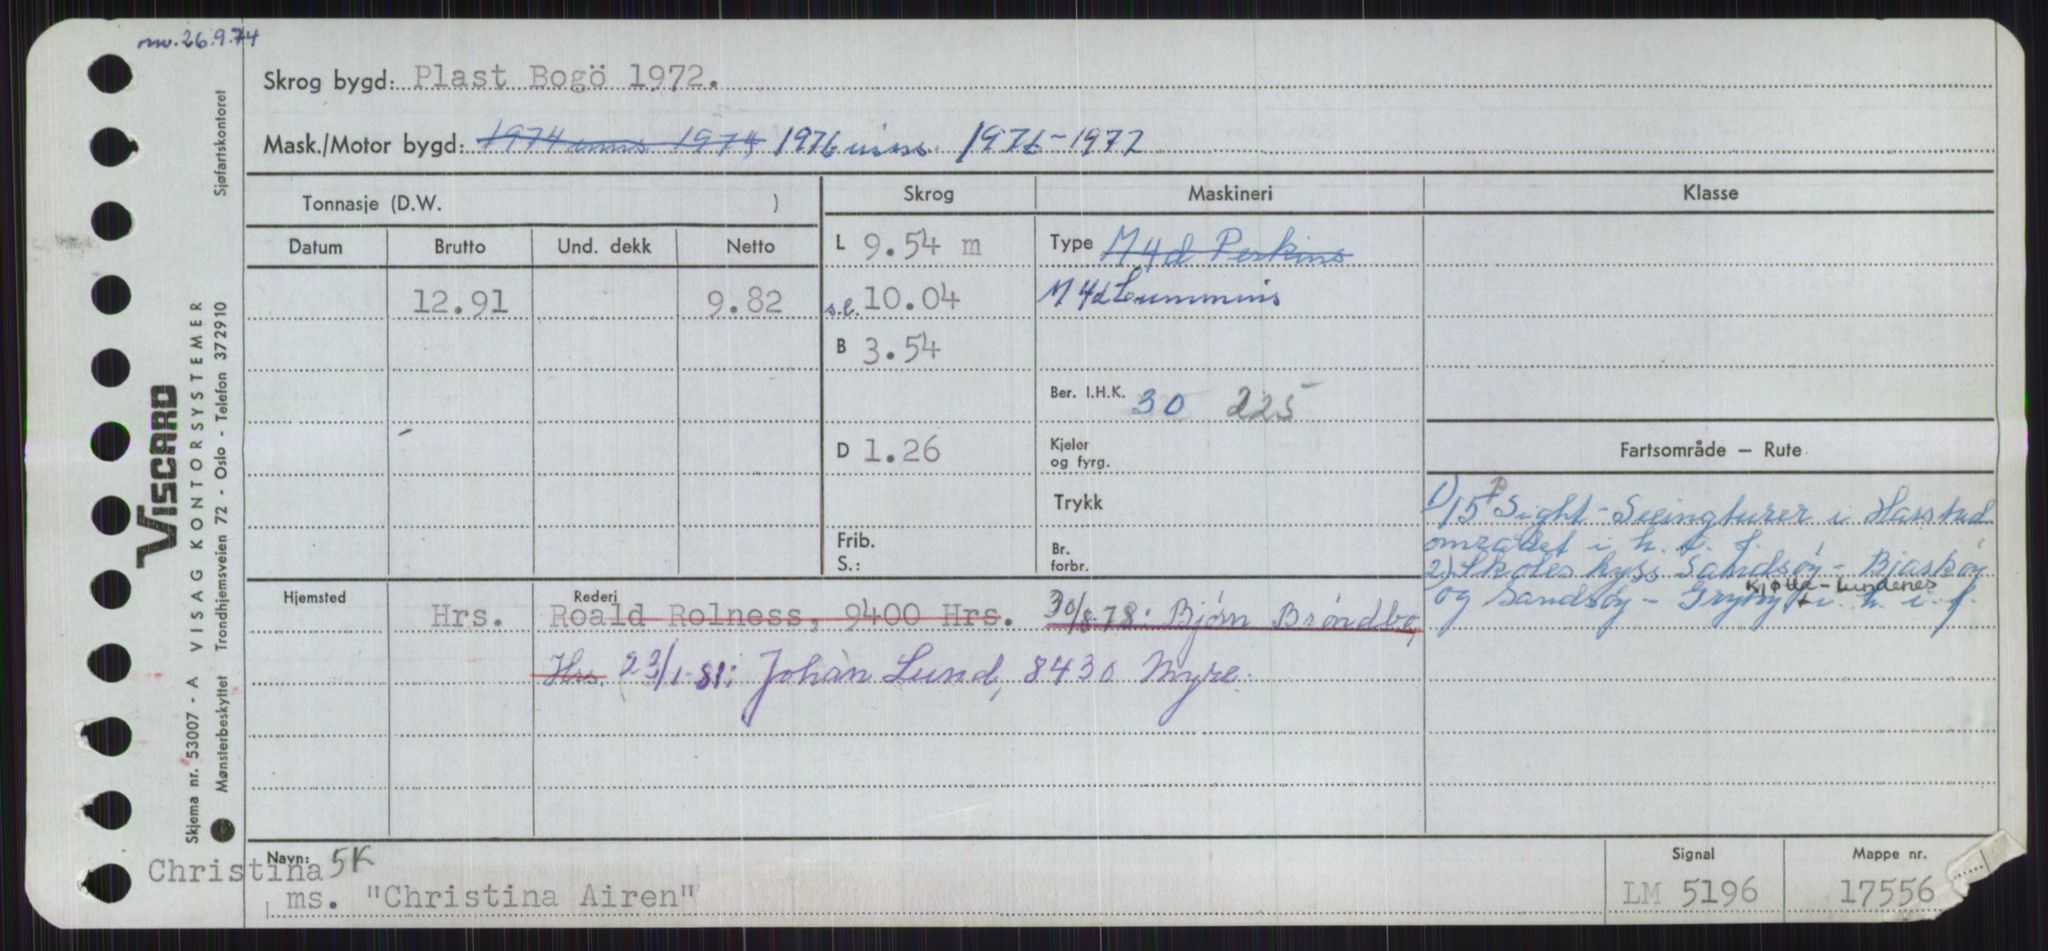 mv. 26.9.74
Skrog bygd: Plast Bogö 1972.
Mask./Motor bygd: 1974 inns 1974 1976 inns. 1976-1977
Tonnasje (D.W. )
Skrog
Maskineri
Klasse
Datum
Brutto
Und. dekk
Netto
L 9.54 m
Type M 4d Perkins
12.91
9.82
s.l. 10.04
M 4d Cummins
B 3.54
Ber. I.H.K. 30 225
D 1.26
Kjeler
og fyrg.
Fartsområde — Rute
Trykk
1) 15 P Sight-Seeingturer i Harstad
Frib.
S.:
Br.
forbr.
området i h. t. f.
2) Skoleskyss Sandsøy - Bjarkøy
Kjøtta-Lundenes
og Sandsøy - Grytøy i h. i. f.
Hjemsted
Hrs.
Rederi
Roald Rolness, 9400 Hrs. 30/8-78: Bjørn Brøndbo,
Hrs. 23/1-81: Johan Lund, 8430 Myre.
Navn:
Christina 5K
ms. "Christina Airen"
Signal
LM 5196
Mappe nr.
17556
Sjøfartskontoret
VISCARD
Skjema nr. 53007 - A VISAG KONTORSYSTEMER
Mønsterbeskyttet Trondhjemsveien 72 - Oslo - Telefon 372910